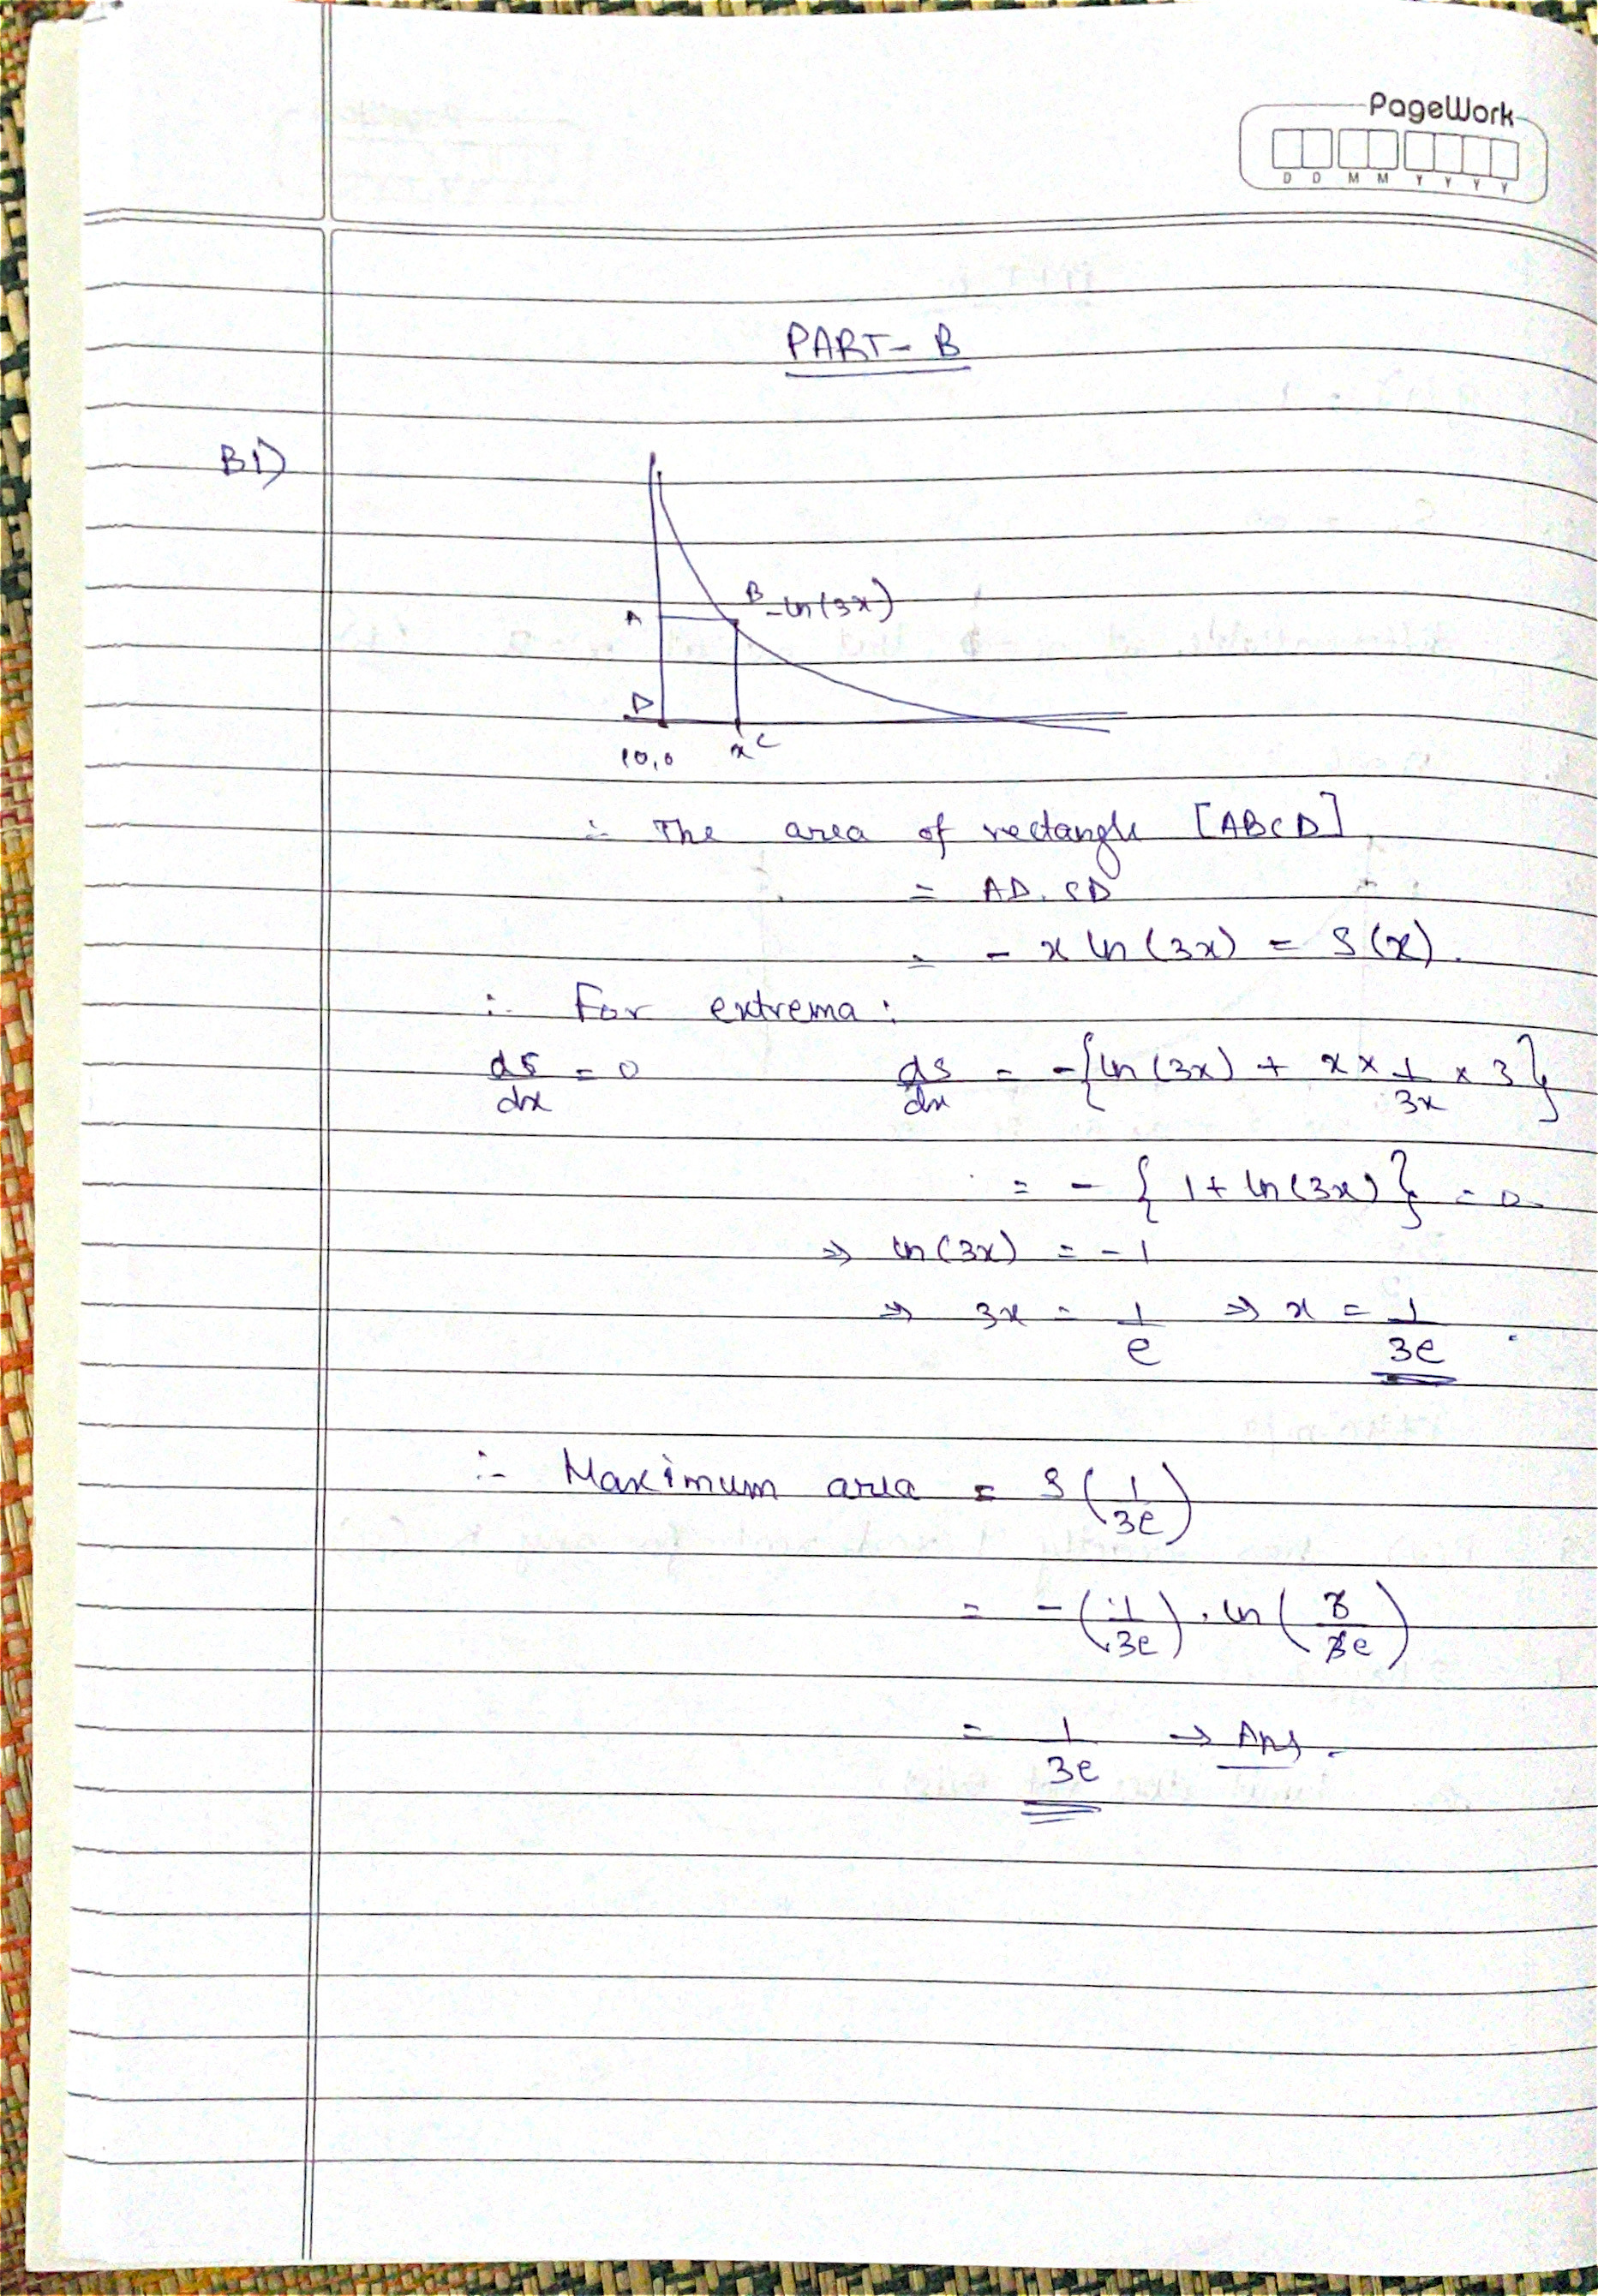 PageWork
D D M M Y Y Y Y
PART-B
B1)
B -ln(3x)
A
D
(0,0 x C
∴ The area of rectangle [ABCD]
= AD. CD
= - x ln (3x) = S(x).
∴ For extrema:
dS/dx = 0 dS/dx = -{ln (3x) + x × 1/3x × 3}
= - {1 + ln(3x)} = 0
⇒ ln(3x) = -1
⇒ 3x = 1/e ⇒ x = 1/3e .
∴ Maximum area = S(1/3e)
= -(1/3e) . ln(3/3e)
= 1/3e → Ans.